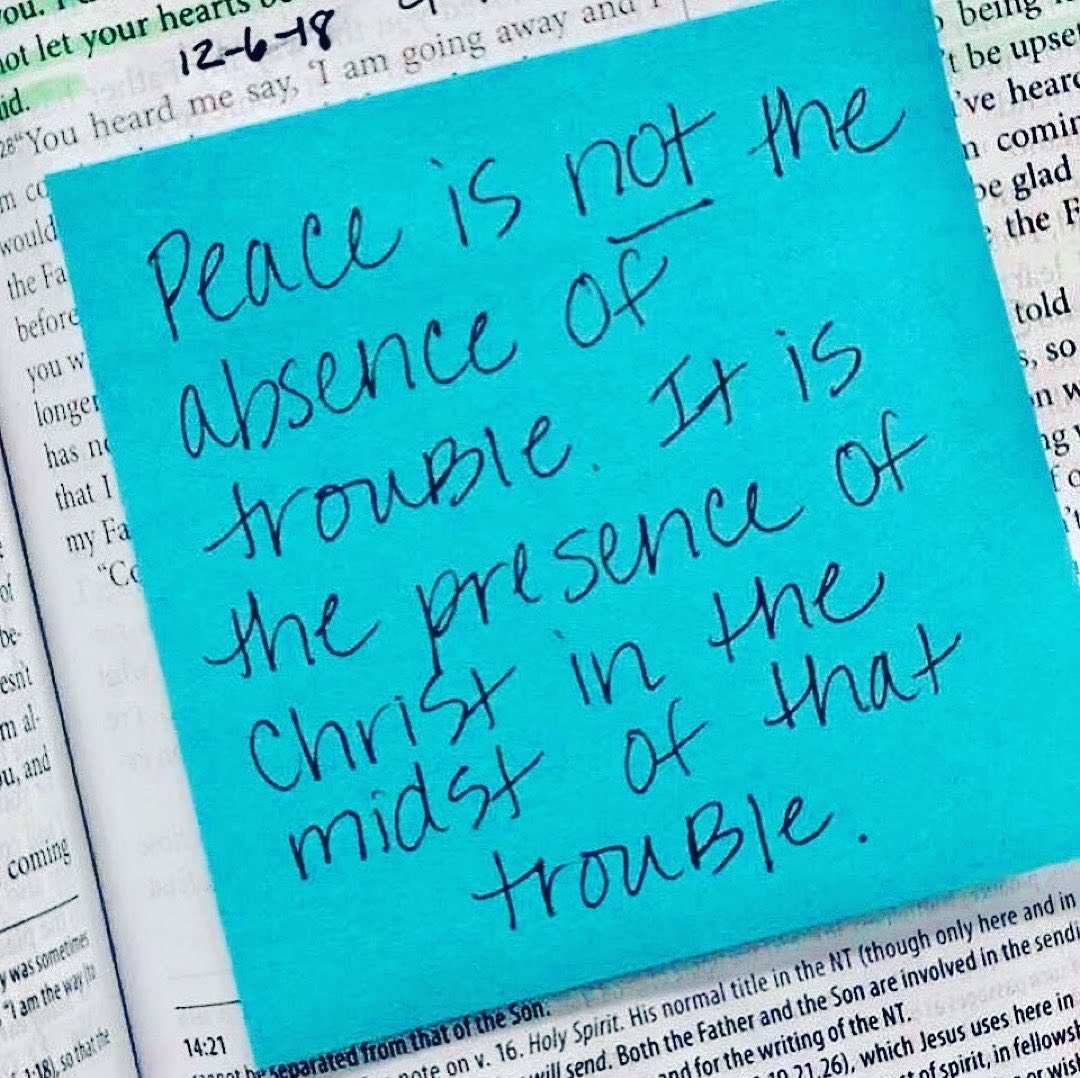 not let your hearts
12-6-18
id.
28"You heard me say, 'I am going away and I
would
the Fa
before
you w
longer
has no
that I
my Fa
"Co
Peace is not the
absence of
trouble. It is
the presence of
Christ in the
midst of that
trouble.
being
't be upset
've heard
coming
be glad
the F
told
s, so
of
be-
esn't
m al-
ou, and
coming
y was sometimes
"I am the way to
1:18), so that the
14:21
cannot be separated from that of the Son.
note on v. 16. Holy Spirit. His normal title in the NT (though only here and in
will send. Both the Father and the Son are involved in the sendi
and for the writing of the NT.
21.26), which Jesus uses here in
of spirit, in fellowsh
or wish